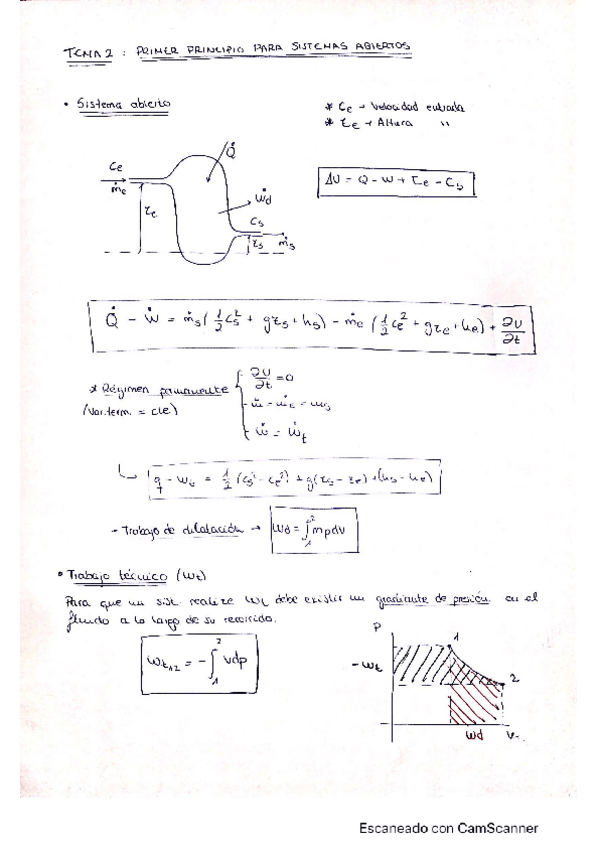 TEMA 2 : PRIMER PRINCIPIO PARA SISTEMAS ABIERTOS
• Sistema abierto
* Ce → Velocidad entrada
* Ze → Altura "
Q̇
Ce
ṁe
Ze
Ẇd
Cs
Zs
ṁs
ΔU = Q - W + Ce - Cs
Q̇ - Ẇ = ṁs (1/2 Cs² + gZs + hs) - ṁe (1/2 Ce² + gZe + he) + ∂U/∂t
* Régimen permanente
(Var. term. = cte)
∂U/∂t = 0
ṁ = ṁe = ṁs
Ẇ = Ẇt
q - wt = 1/2 (Cs² - Ce²) + g(Zs - Ze) + (hs - he)
- Trabajo de dilatación → Wd = ∫₁² mpdv
• Trabajo técnico (Wt)
Para que un sist. realize Wt debe existir un gradiante de presión en el
fluido a lo largo de su recorrido.
Wt12 = - ∫₁² vdp
P
1
- Wt
2
Wd
V
Escaneado con CamScanner